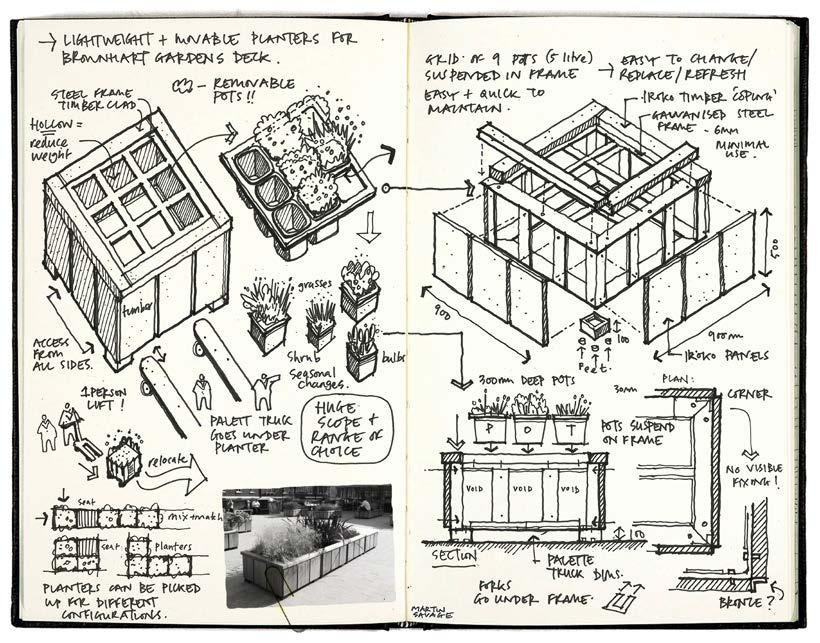 → LIGHTWEIGHT + MOVABLE PLANTERS FOR
BROWNHART GARDENS DECK.
- REMOVABLE
POTS!!
STEEL FRAME
TIMBER CLAD
HOLLOW =
reduce
weight
timber
ACCESS
FROM
ALL SIDES.
grasses
shrub
bulbs
Seasonal
changes.
1 PERSON
LIFT!
PALETT TRUCK
GOES UNDER
PLANTER
HUGE
SCOPE +
RANGE OF
CHOICE
relocate
seat
mix+match
seat
Planters
PLANTERS CAN BE PICKED
UP FOR DIFFERENT
CONFIGURATIONS.
GRID OF 9 POTS (5 litre)
SUSPENDED IN FRAME
EASY + QUICK TO
MAINTAIN.
→ EASY TO CHANGE/
REPLACE/REFRESH
IROKO TIMBER 'COPING'
GALVANISED STEEL
FRAME - 6mm
MINIMAL
USE.
500
900
900mm
100
Feet.
IROKO PANELS
300mm DEEP POTS
P O T
POTS SUSPEND
ON FRAME
VOID VOID VOID
100
SECTION
PALETTE
TRUCK DIMS.
FORKS
GO UNDER FRAME.
PLAN:
30mm
CORNER
NO VISIBLE
FIXING!
BRONZE?
MARTIN
SAVAGE